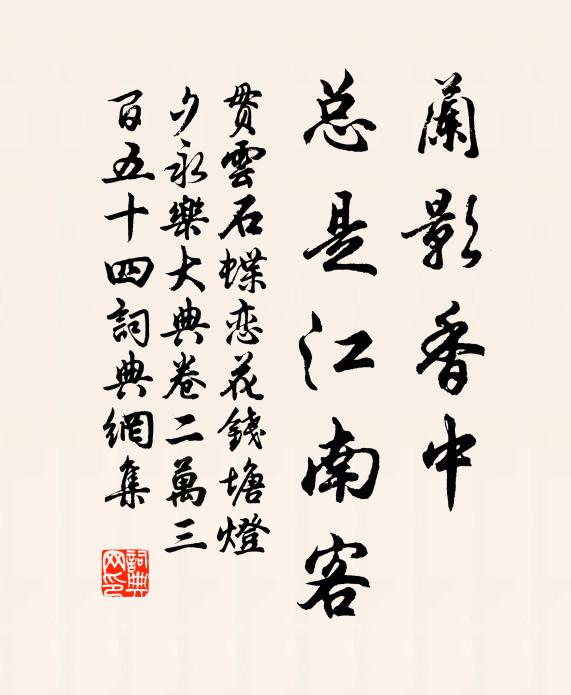 蘭影香中
总是江南客
贯雲石蝶恋花錢塘燈
夕永樂大典卷二萬三
百五十四詞典網集
詞典
网印